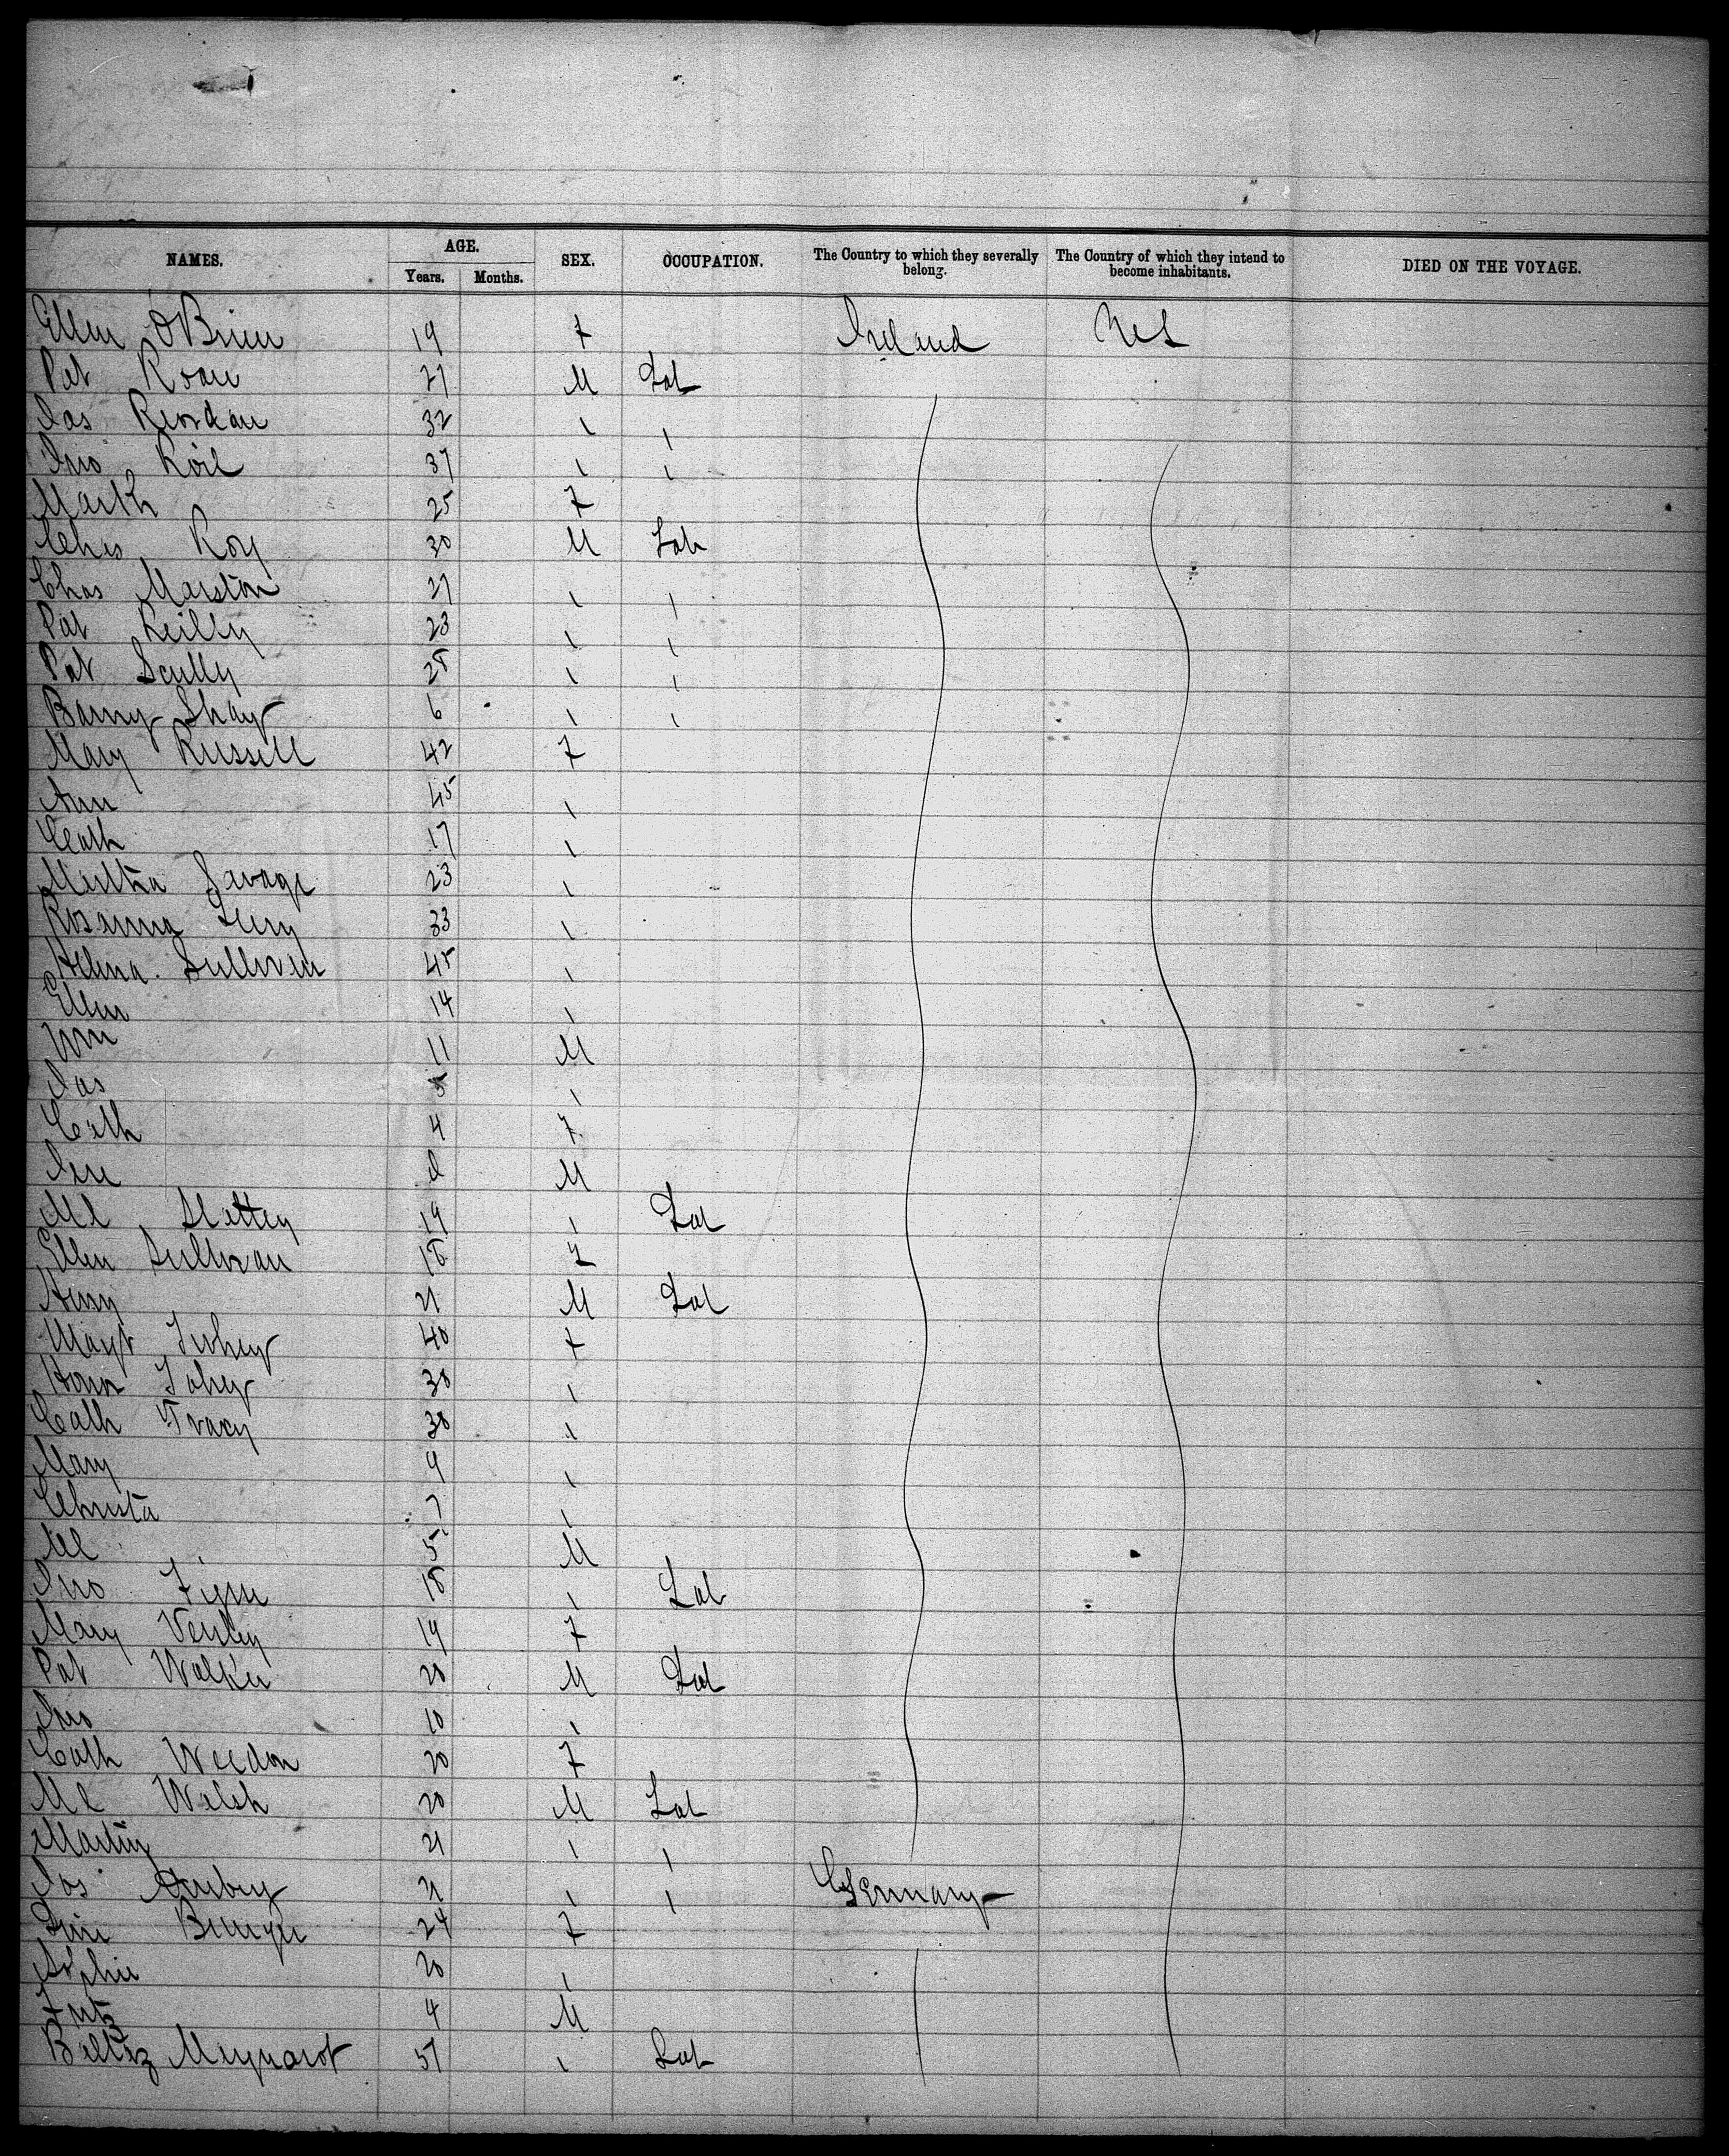 NAMES. AGE. SEX. OCCUPATION. The Country to which they severally belong. The Country of which they intend to become inhabitants. DIED ON THE VOYAGE.
Years. Months.
Ellen O'Brien 19 F Ireland US
Pat Roan 27 M Lab
Jas Riordan 32 \ \
Jno Roil 37 \ \
Marth 25 F
Chas Roy 30 M Lab
Chas Marston 27 \ \
Pat Reilly 23 \ \
Pat Scully 28 \ \
Barny Shay 6 \ \
Mary Russell 42 F
Ann 45 \
Cath 17 \
Martha Savage 23 \
Rosanna 33 \
Helena Sullivan 45 \
Ellen 14 \
Wm 11 M
Jas 5 \
Cath 4 F
M
Ml Slattey 19 \ Lab
Ellen Sullivan 18 F
Henry 21 M Lab
Magt 40 F
Hanr 30 \
Cath Tracy 30 \
Mary 9 \
Christa 7 \
Ml 5 M
Jno 18 \ Lab
Mary 19 F
Pat Walker 20 M Lab
Jno 10 \
Cath Weedon 20 F
Ml Walsh 20 M Lab
Martin 21 \ \
Jos 21 \ \ Germany
24 F
Sophie 20 \
Fritz 4 M
Beltz 57 \ Lab